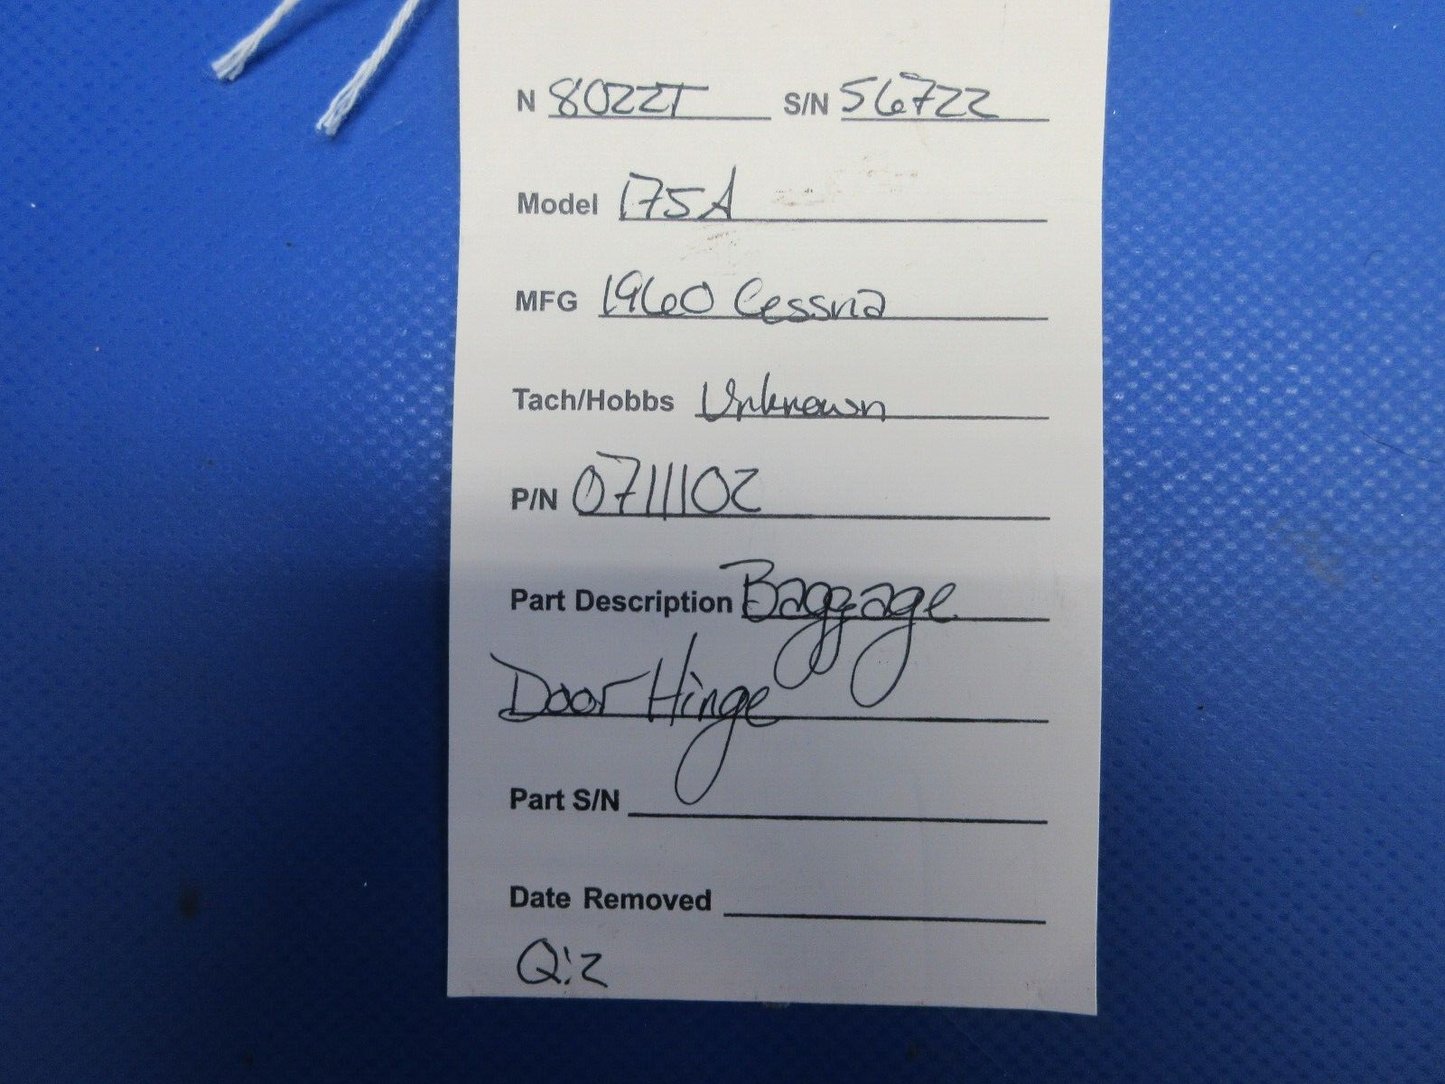 N 8022T S/N 56722
Model 175A
MFG 1960 Cessna
Tach/Hobbs Unknown
P/N 0711102
Part Description Baggage
Door Hinge
Part S/N
Date Removed
Q:2